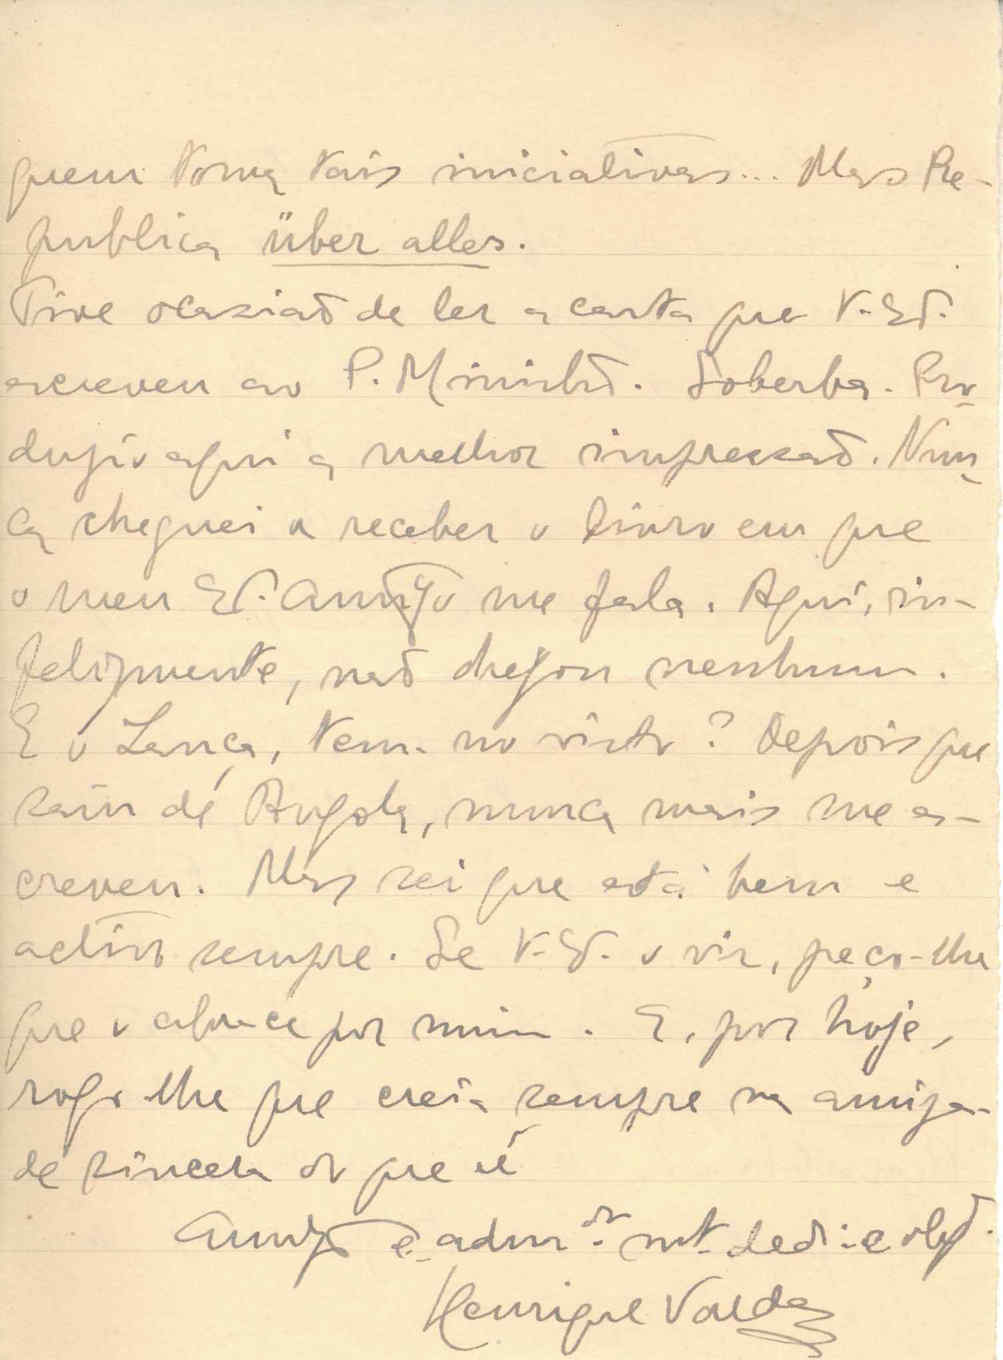 quem toma tais iniciativas... Mas Re-
publica über alles.
Tive ocasião de ler a carta que V. Ex.
escreveu ao P. Ministro. Soberba. Pro-
duziu aqui a melhor impressão. Nun-
ca cheguei a receber o livro em que
o meu Ex. Amigo me fala. Aqui, in-
felizmente, não chegou nenhum.
E o Lança, tem-no visto? Depois que
saiu de Angola, nunca mais me es-
creveu. Mas sei que está bem e
activo sempre. Se V. Ex. o vir, peço-lhe
que o abrace por mim. E, por hoje,
rogo-lhe que creia sempre na amiza-
de sincera do que é
Amigo e adm.dor mt. ded. e obg.
Henrique